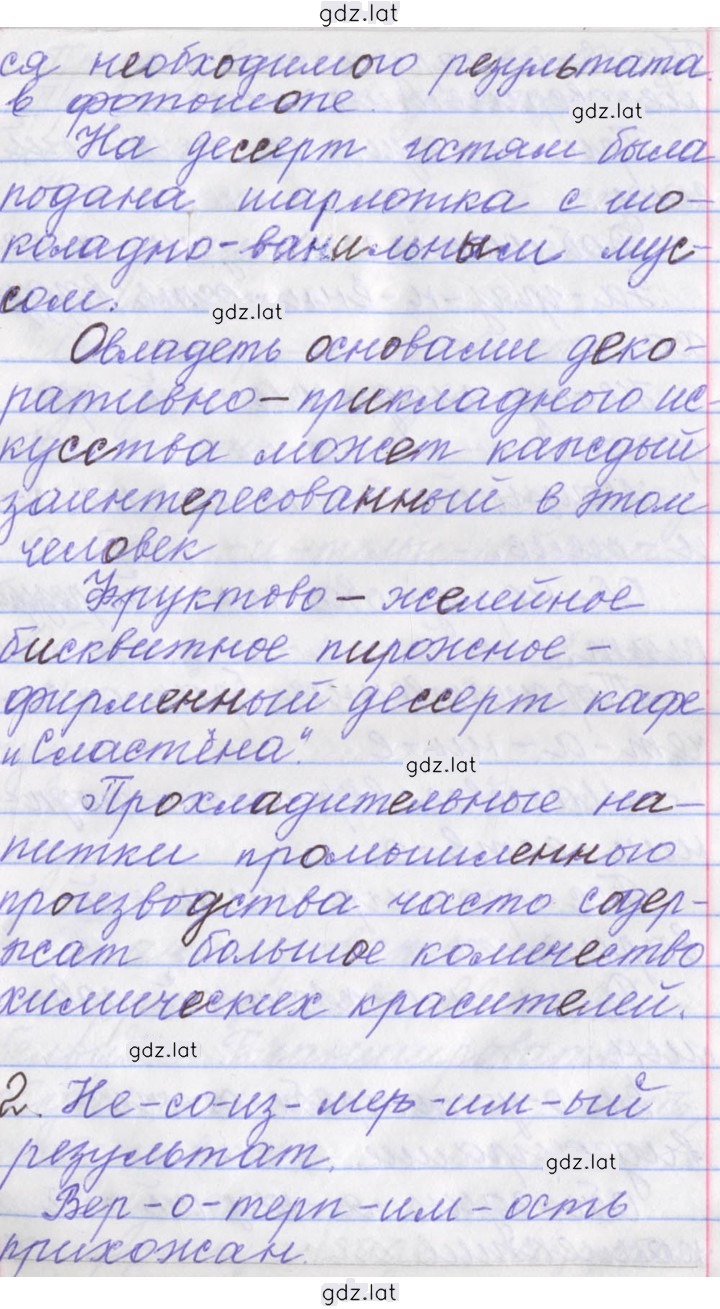 gdz.lat
ся необходимого результата
в фотошопе
gdz.lat
На десерт гостям была
подана шарлотка с шо-
коладно-ванильным мус-
сом.
gdz.lat
Овладеть основами деко-
ративно-прикладного ис
кусства может каждый
заинтересованный в этом
человек
Фруктово-желейное
бисквитное пирожное -
фирменный дессерт кафе
"Сластёна".
gdz.lat
Прохладительные на-
питки промышленного
производства часто содер-
жат большое количество
химических красителей.
gdz.lat
2. Не-со-из-мер-им-ый
результат.
gdz.lat
Вер-о-терп-им-ость
прихожан.
gdz.lat